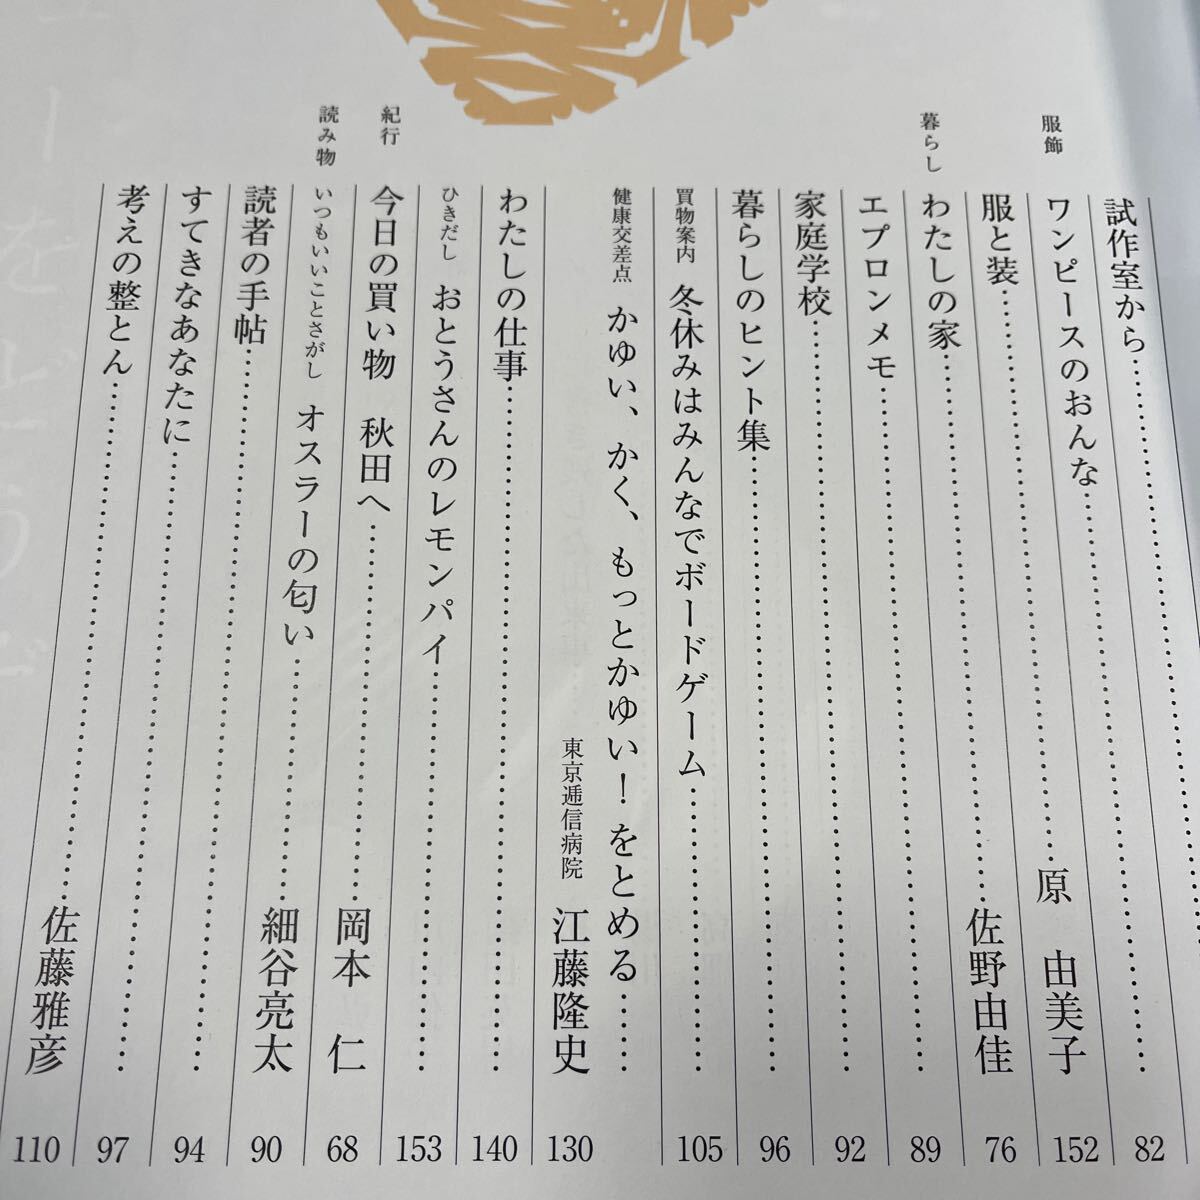 試作室から 82
服飾
ワンピースのおんな 原 由美子 152
服と装 佐野由佳 76
暮らし
わたしの家 89
エプロンメモ 92
家庭学校 96
暮らしのヒント集 105
買物案内 冬休みはみんなでボードゲーム
健康交差点 かゆい、かく、もっとかゆい!をとめる
東京逓信病院 江藤隆史 130
わたしの仕事 140
ひきだし おとうさんのレモンパイ 153
紀行
今日の買い物 秋田へ 岡本 仁 68
読み物
いつもいいことさがし オスラーの匂い 細谷亮太 90
読者の手帖 94
すてきなあなたに 97
考えの整とん 佐藤雅彦 110